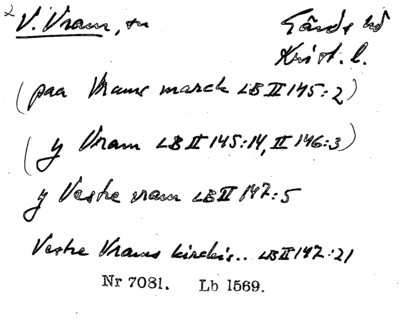 2 V. Vram, sn Gärds hd
Krist. l.
(paa Vrams march LB II 145:2)
(y Vram LB II 145:14, II 146:3)
y Vestre vram LB II 147:5
Vestre Vrams kirckis.. LB II 147:21
Nr 7081. Lb 1569.